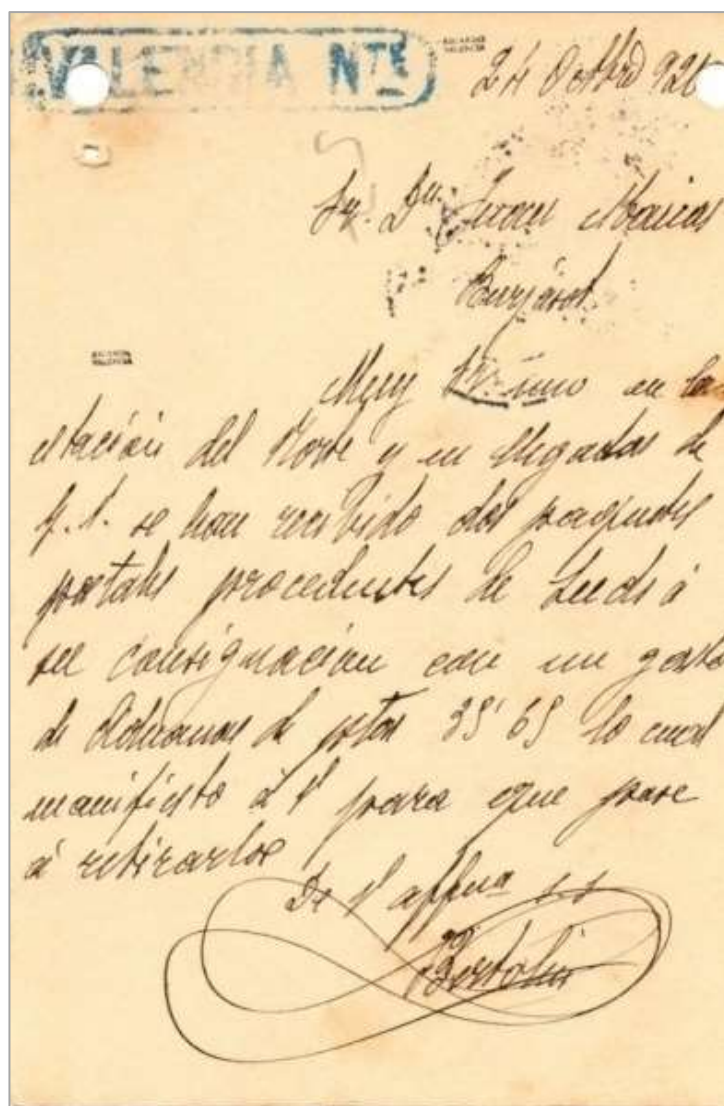 VALENCIA NTE
24 Octbre 92
Sr. Dn. Juan Macias
Burjasot
Muy Sr. mio en la
estación del Norte y en llegadas de
g. v. se han recibido dos paquetes
postales procedentes de Leeds á
su consignacion con un gasto
de Aduanas de ptas 35'65 lo cual
manifiesto á V para que pase
á retirarlos
De V affmo s s